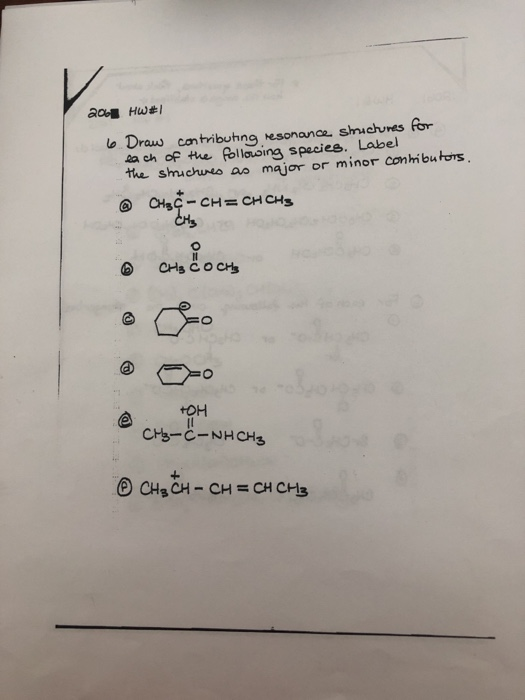 206 HW#1
6 Draw contributing resonance structures for
each of the following species. Label
the structures as major or minor contributors.
ⓐ CH₃C⁺-CH=CHCH₃
CH₃
O
ⓑ CH₃COCH₃
ⓒ ⊖ =O
ⓓ =O
+OH
ⓔ CH₃-C-NHCH₃
+
ⓕ CH₃CH-CH=CHCH₃